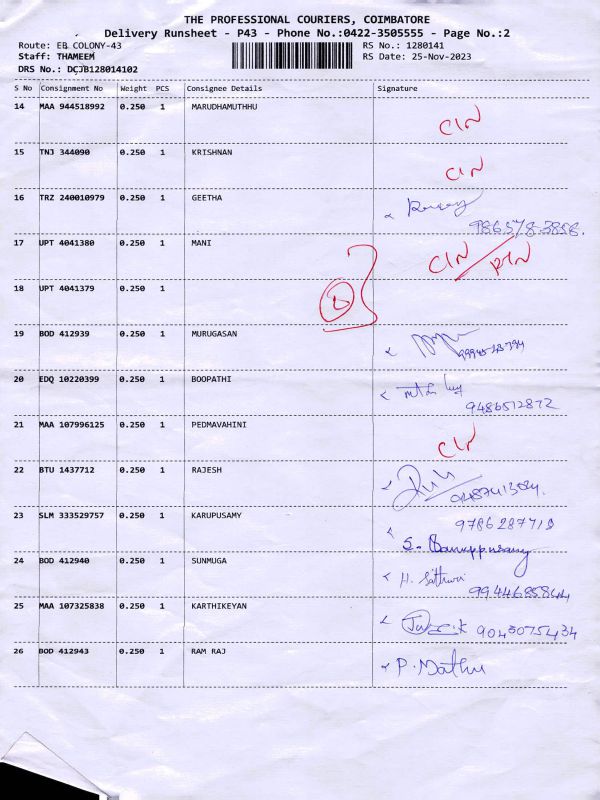 THE PROFESSIONAL COURIERS, COIMBATORE
Delivery Runsheet - P43 - Phone No.:0422-3505555 - Page No.:2
Route: EB COLONY-43 RS No.: 1280141
Staff: THAMEEM RS Date: 25-Nov-2023
DRS No.: DCJB128014102
S No Consignment No Weight PCS Consignee Details Signature
14 MAA 944518992 0.250 1 MARUDHAMUTHHU CIN
15 TNJ 344090 0.250 1 KRISHNAN CIN
16 TRZ 240010979 0.250 1 GEETHA
17 UPT 4041380 0.250 1 MANI CIN
18 UPT 4041379 0.250 1
19 BOD 412939 0.250 1 MURUGASAN
20 EDQ 10220399 0.250 1 BOOPATHI
9486512872
21 MAA 107996125 0.250 1 PEDMAVAHINI CIN
22 BTU 1437712 0.250 1 RAJESH
23 SLM 333529757 0.250 1 KARUPUSAMY
24 BOD 412940 0.250 1 SUNMUGA
25 MAA 107325838 0.250 1 KARTHIKEYAN 9043075434
26 BOD 412943 0.250 1 RAM RAJ P. Mathu